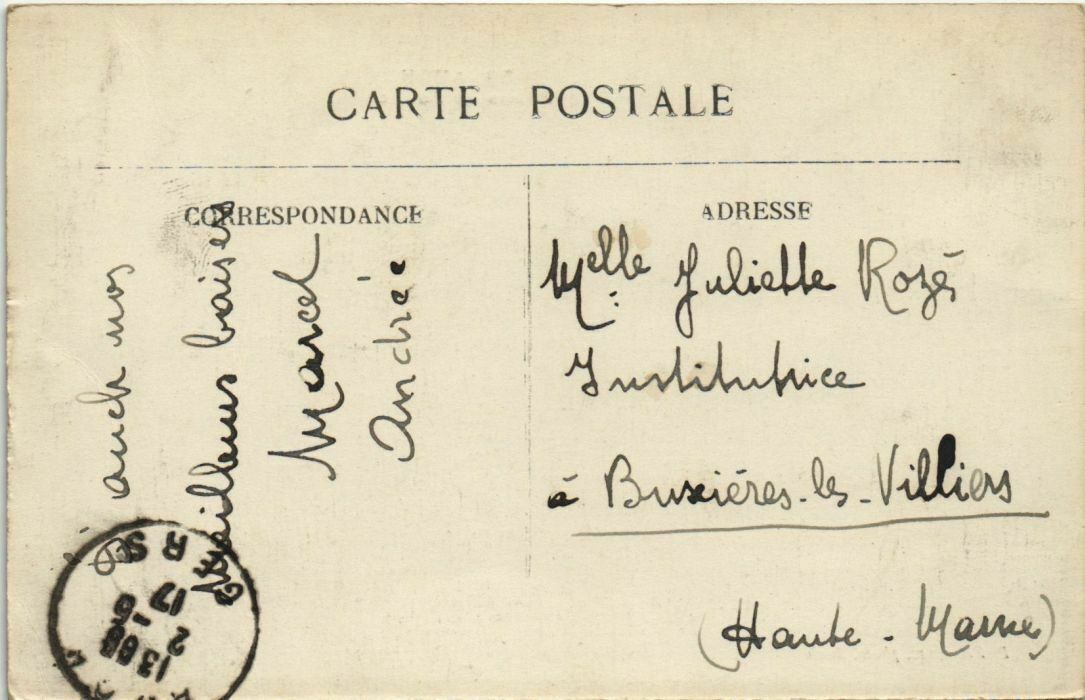 CARTE POSTALE
CORRESPONDANCE
Auch nos
Meilleurs baisers
Marcel
Andrée
ADRESSE
Melle Juliette Rozés
Institutrice
à Buxiéres-les-Villiers
(Haute-Marne)
GERS
17
2-6